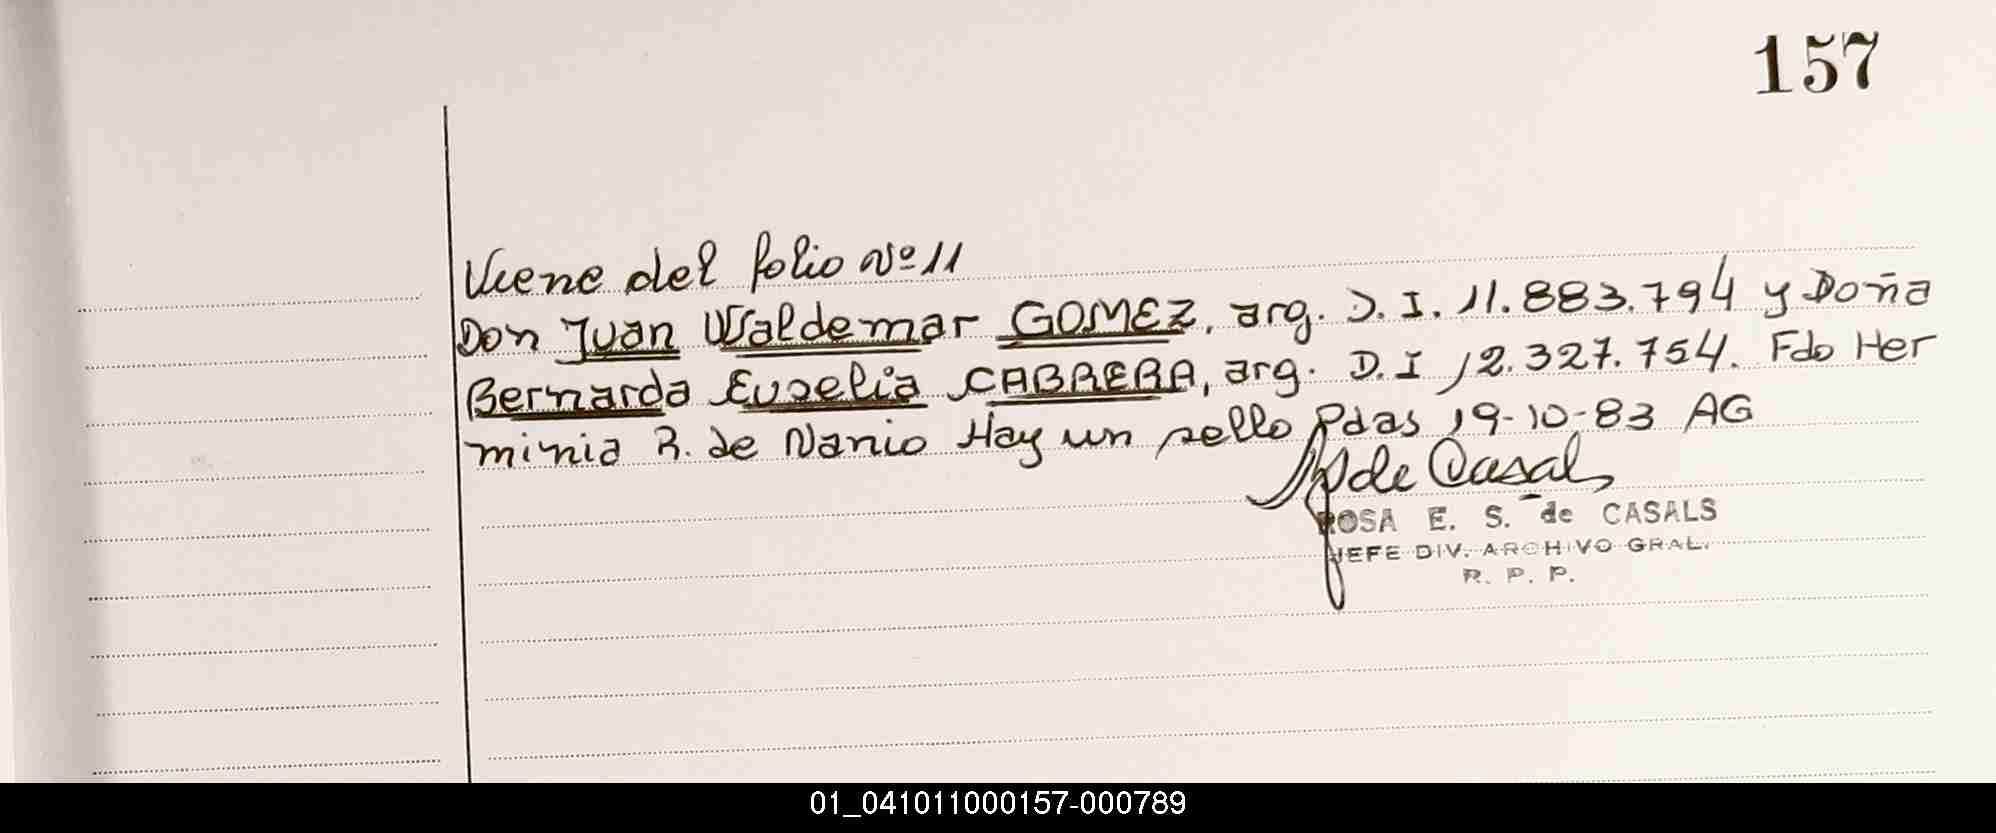 157
Viene del folio Nº 11
Don Juan Waldemar GOMEZ, arg. D. I. 11.883.794 y Doña
Bernarda Euselia CABRERA, arg. D. I 12.327.754. Fdo Her
minia R. de Nanio Hay un sello Pdas 19-10-83 AG
de Casals
ROSA E. S. de CASALS
JEFE DIV. ARCHIVO GRAL.
R. P. P.
01_041011000157-000789